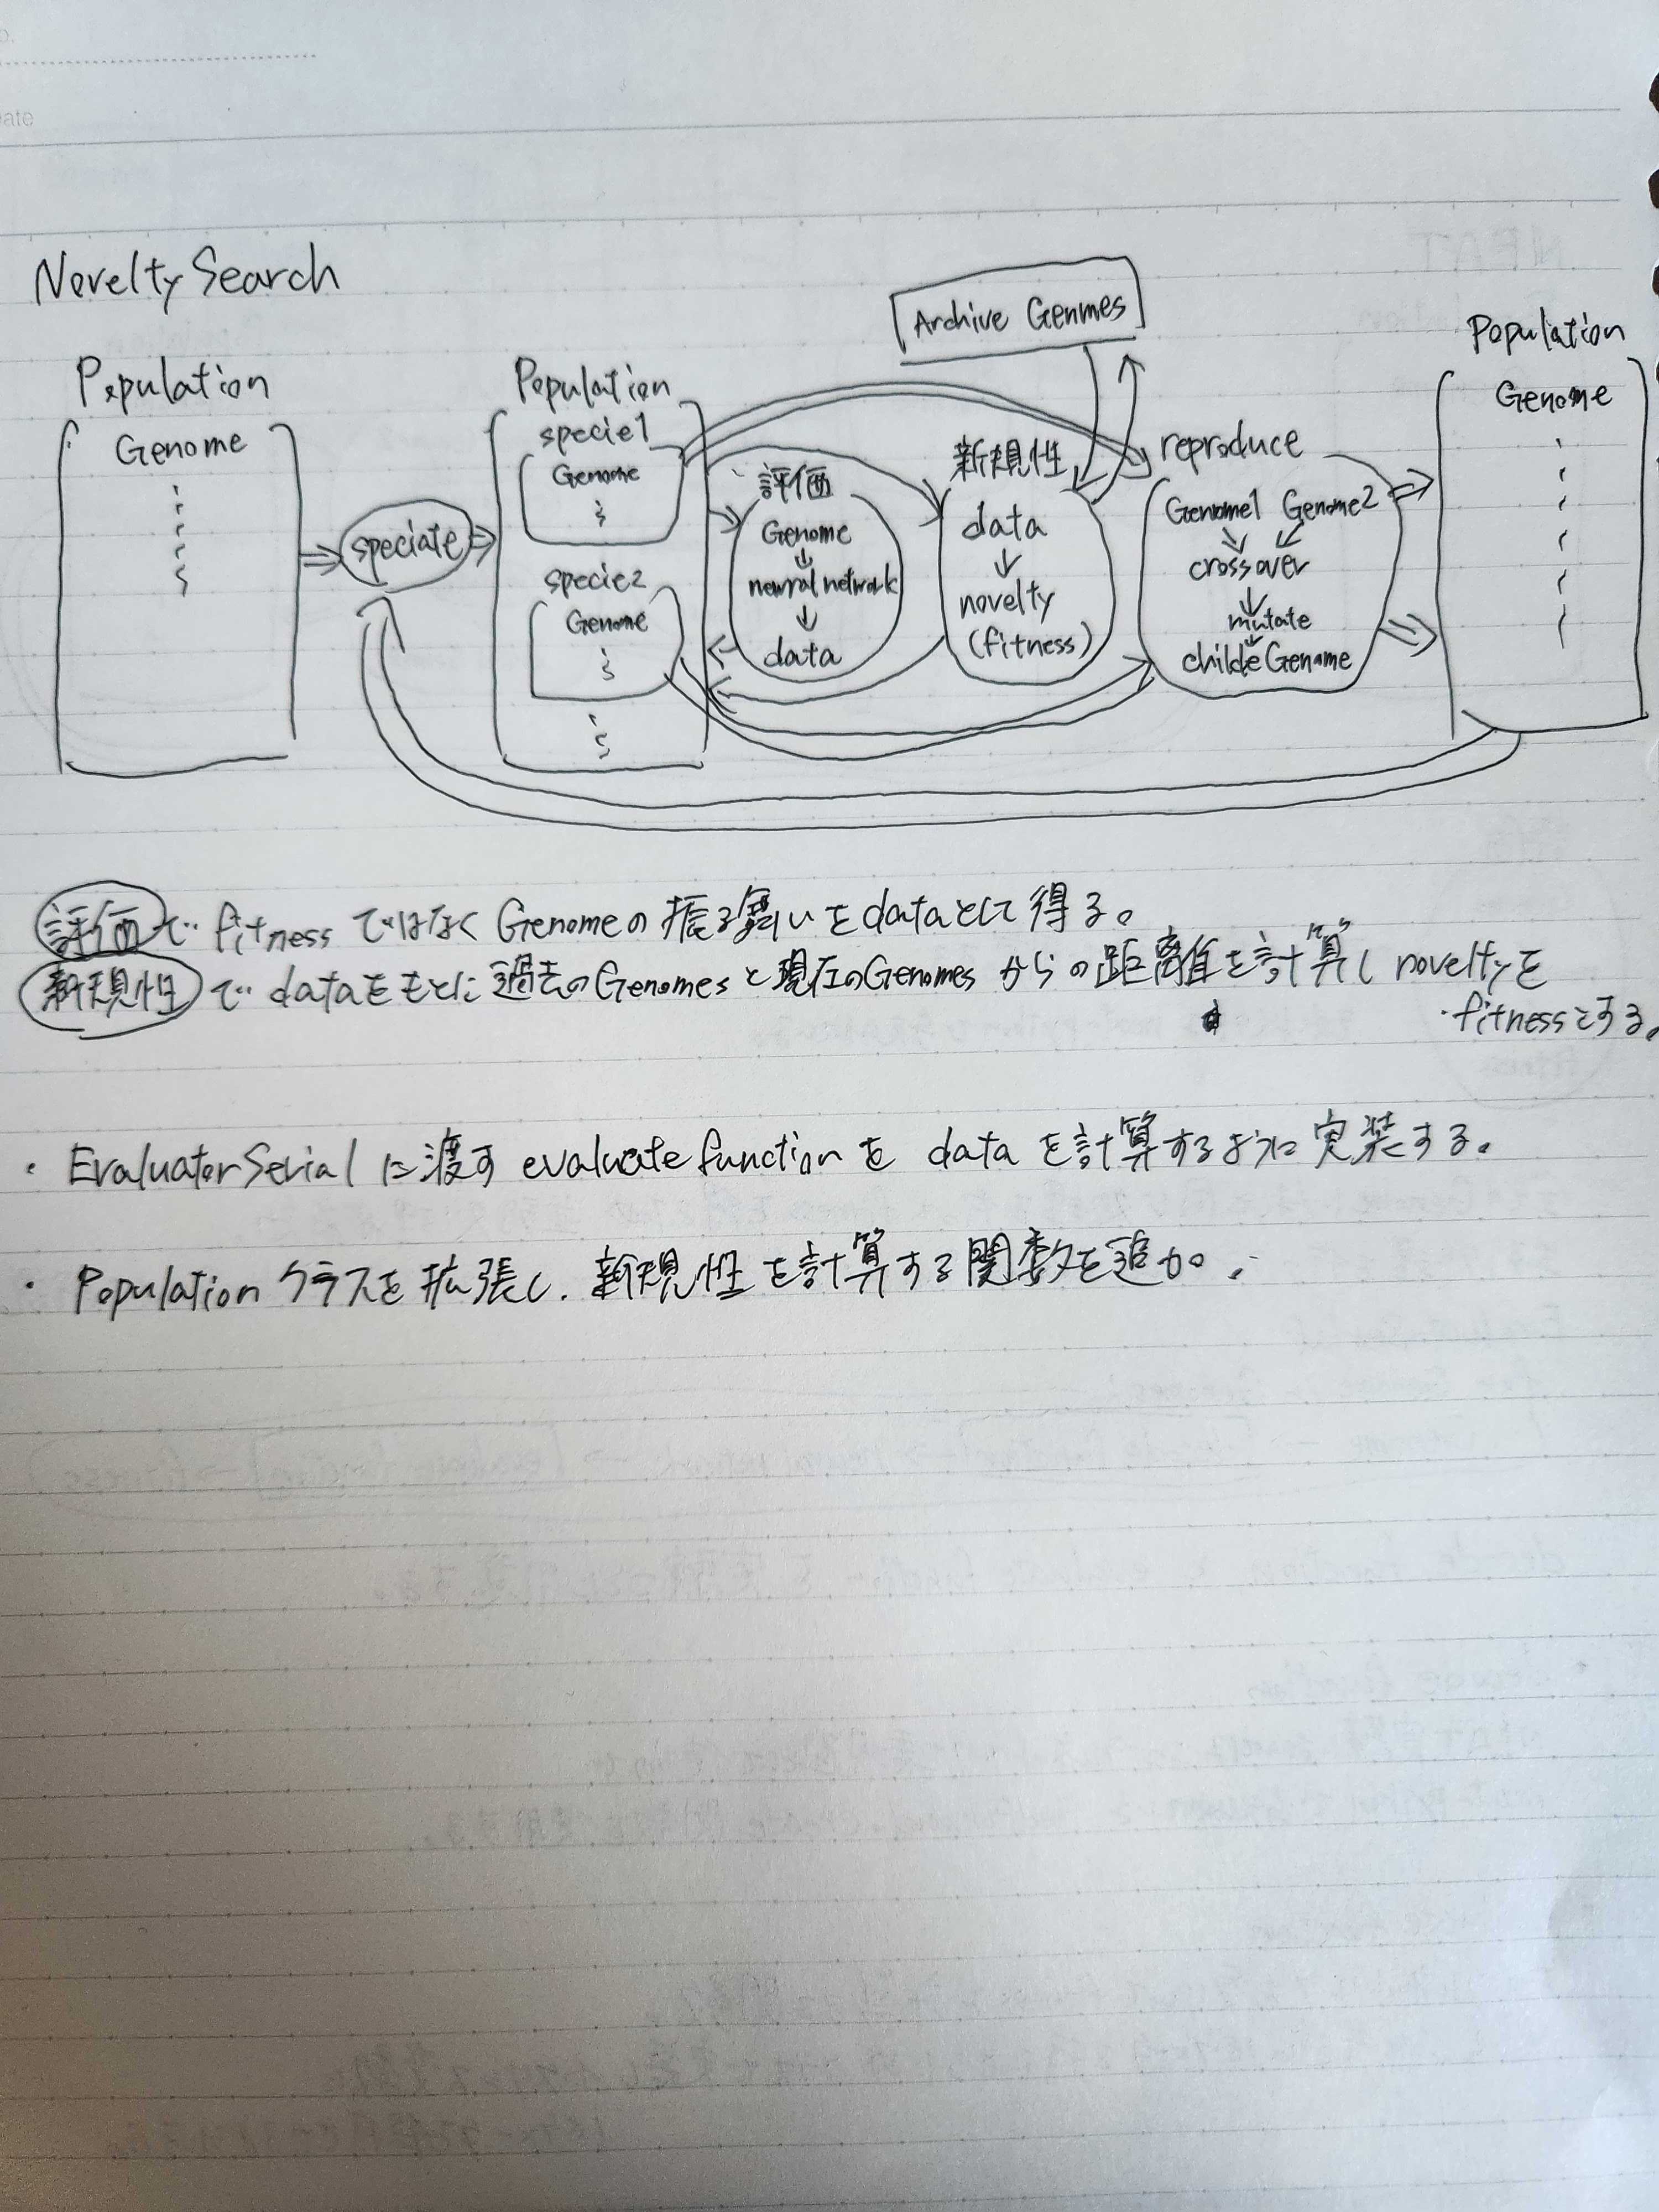 Date
Novelty Search
Archive Genmes
Population
Genome
speciate
Population
specie1
Genome
specie2
Genome
評価
Genome
neural network
data
新規性
data
novelty
(fitness)
reproduce
Genome1 Genome2
crossover
mutate
childeGenome
Population
Genome
評価で fitnessではなく Genomeの振る舞いをdataとして得る。
新規性で dataをもとに過去のGenomesと現在のGenomesからの距離値を計算し noveltyを
fitnessとする。
・ EvaluatorSerialに渡す evaluate functionを dataを計算するように実装する。
・ Populationクラスを拡張し、新規性を計算する関数を追加。